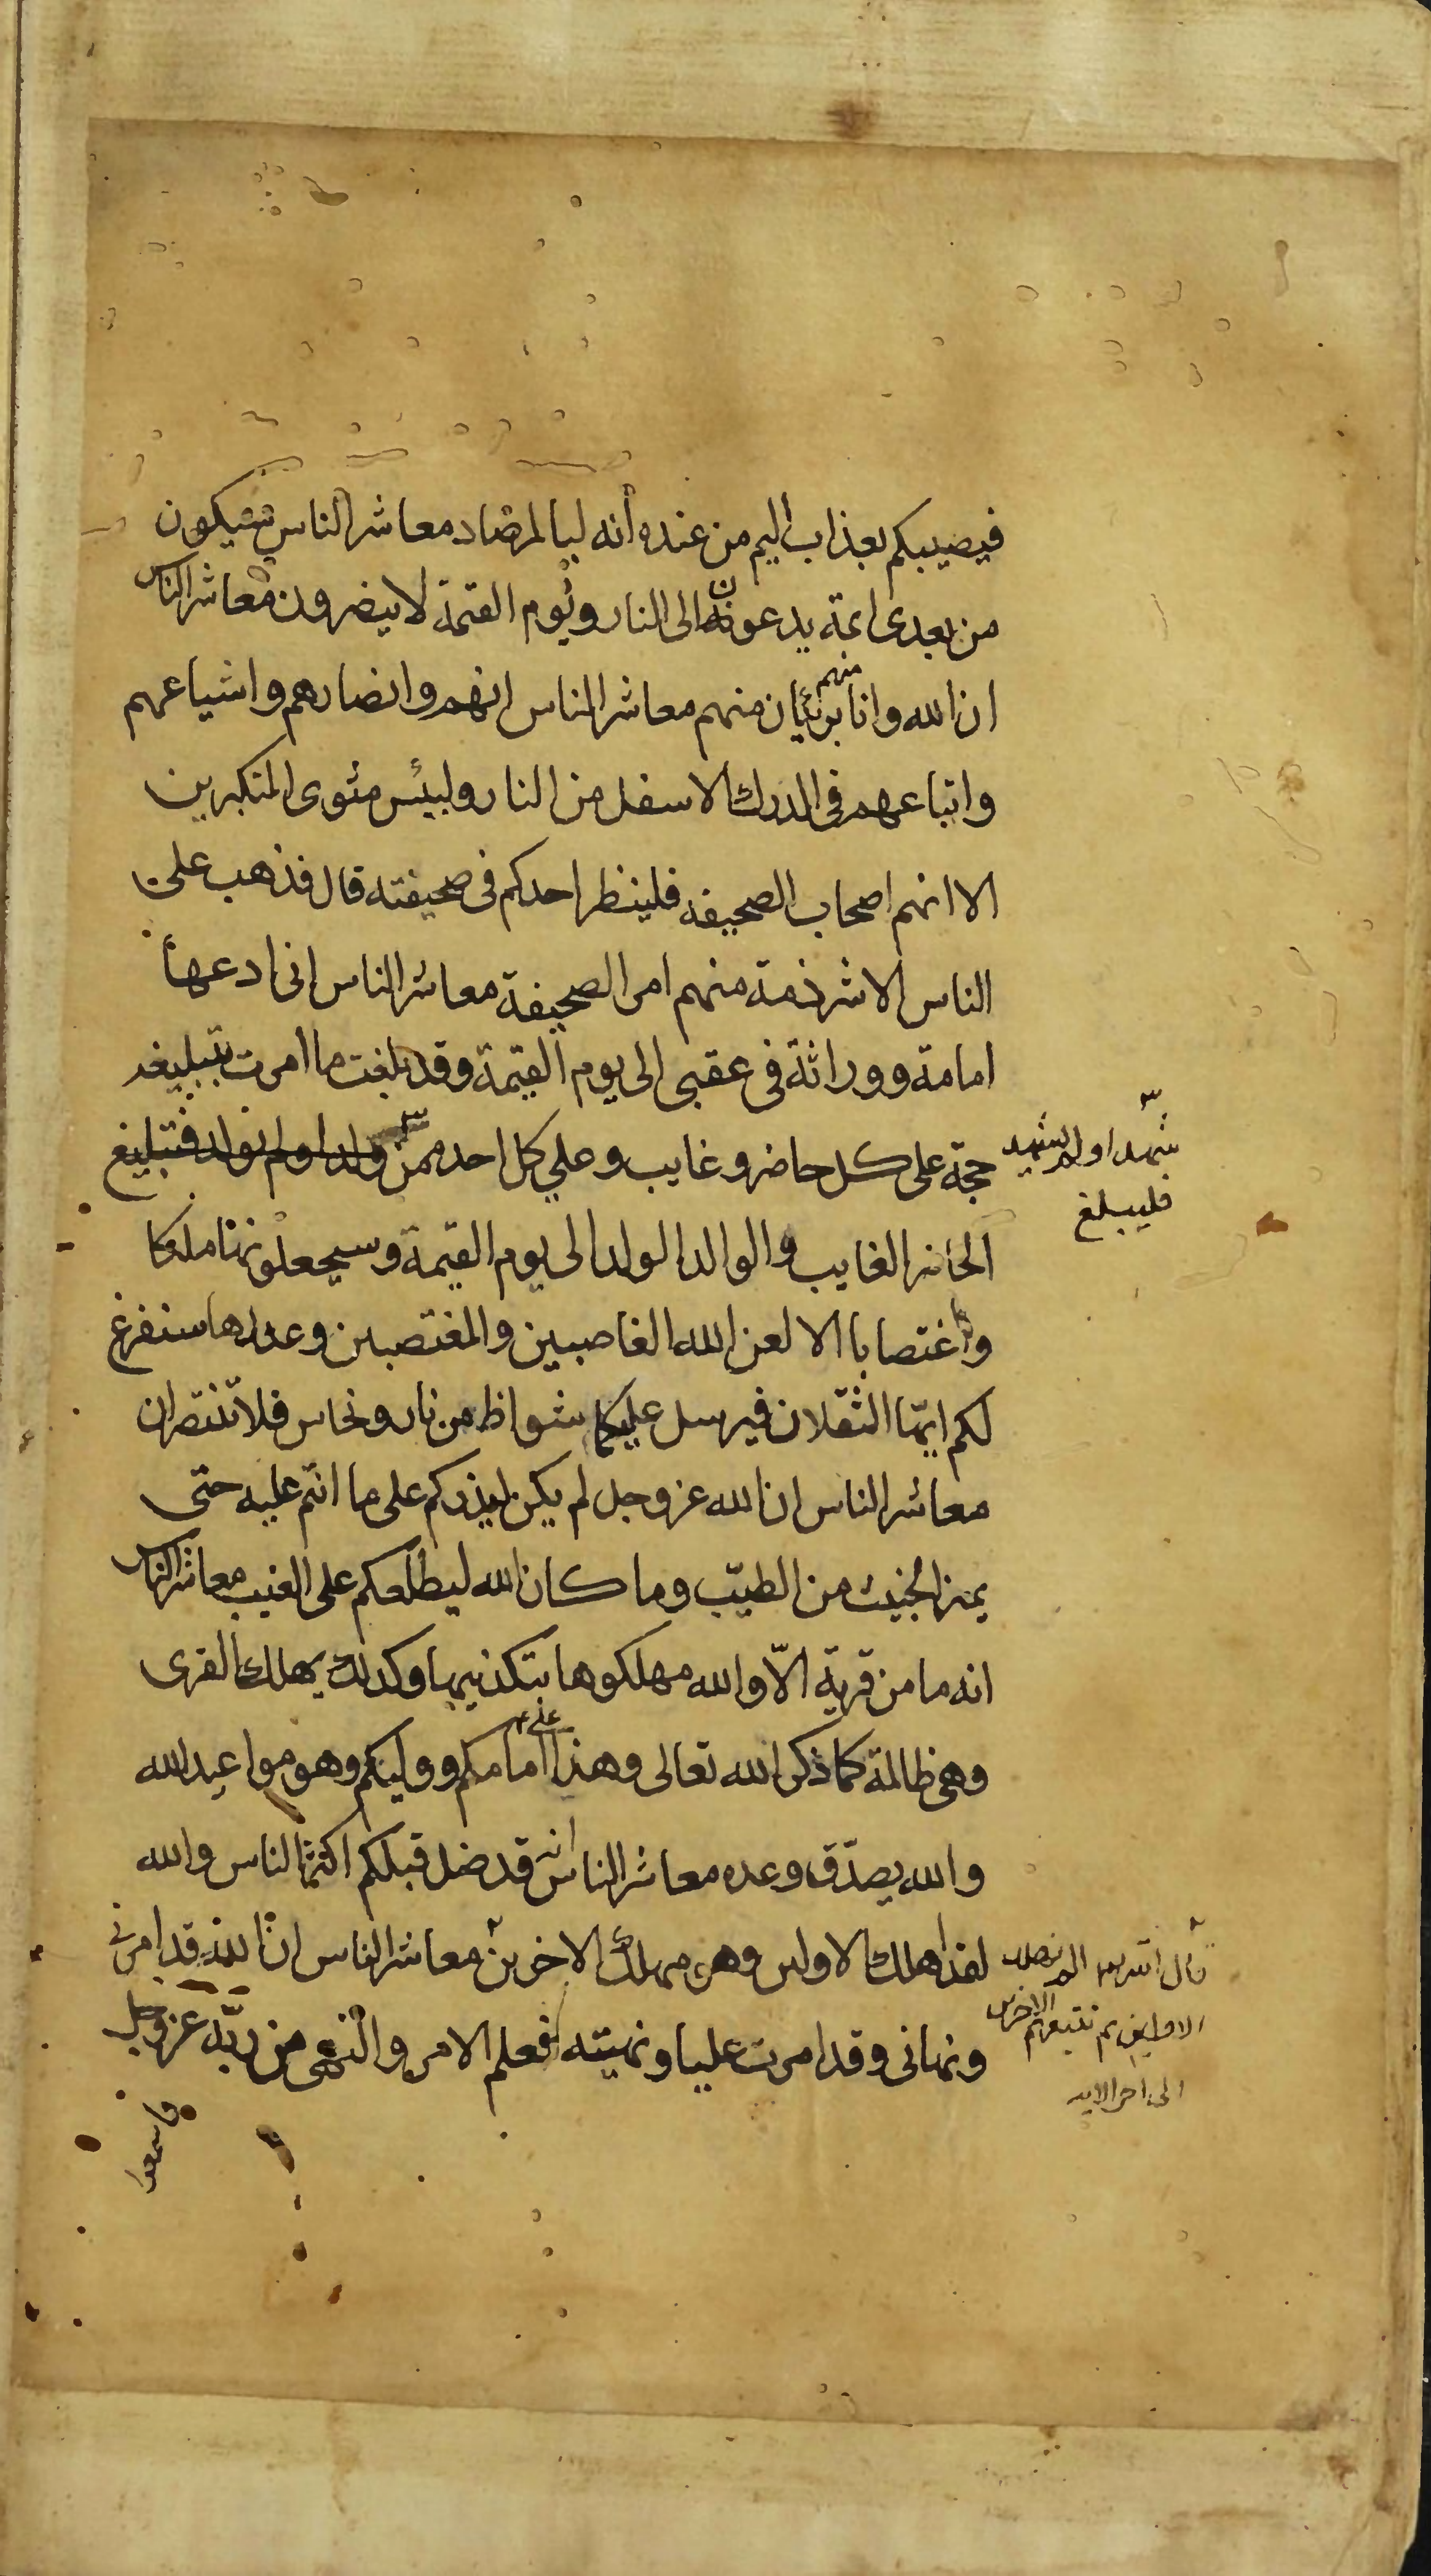 فيصيبكم بعذاب اليم من عنده انه لبا لمرصاد معاشر الناس سيكون
من بعدى ائمة يدعون الى النار ويوم القيمة لا ينصرون معاشر الناس
ان الله وانا بريئان منهم معاشر الناس انهم وانصارهم واشياعهم
منهم
واتباعهم فى الدرك الاسفل من النار ولبئس مثوى المتكبرين
الا انهم اصحاب الصحيفه فلينظر احدكم فى صحيفته قال فذهب على
الناس الا شرذمة منهم امر الصحيفة معاشر الناس انى ادعها
امامة ووراثة فى عقبى الى يوم القيمة وقد بلغت ما امرت بتبليغه
حجة على كل حاضر وغايب وعلي كل احد ممن ولد او لم يولد فتبليغ
شهد او لم يشهد
فليبلغ
الحاضر الغايب والوالد الولد الى يوم القيمة وسيجعلونها ملكا
واغتصابا الا لعن الله الغاصبين والمغتصبين وعدها سنفرغ
لكم ايها الثقلان فيرسل عليكما شواظ من نار ونحاس فلا تنتصران
معاشر الناس ان الله عز وجل لم يكن ليذركم على ما انتم عليه حتى
يميز الخبيث من الطيّب وما كان الله ليطلعكم على الغيب معاشر الناس
انه ما من قرية الّا والله مهلكوها بتكذيبها وكذلك يهلك القرى
وهى ظالمة كما ذكر الله تعالى وهذا امامكم ووليكم وهو مواعيد الله
على
والله يصدّق وعده معاشر الناس قد ضل قبلكم اكثر الناس والله
لقد اهلك الاولين وهو مهلك الاخرين معاشر الناس ان الله قد امرنى
قال الله الم نهلك
الاولين ثم نتبعهم الاخرين
الى اخر الايه
ونهانى وقد امرت عليا ونهيته فعلم الامر والنهى من ربّه عز وجل
فاسمعوا